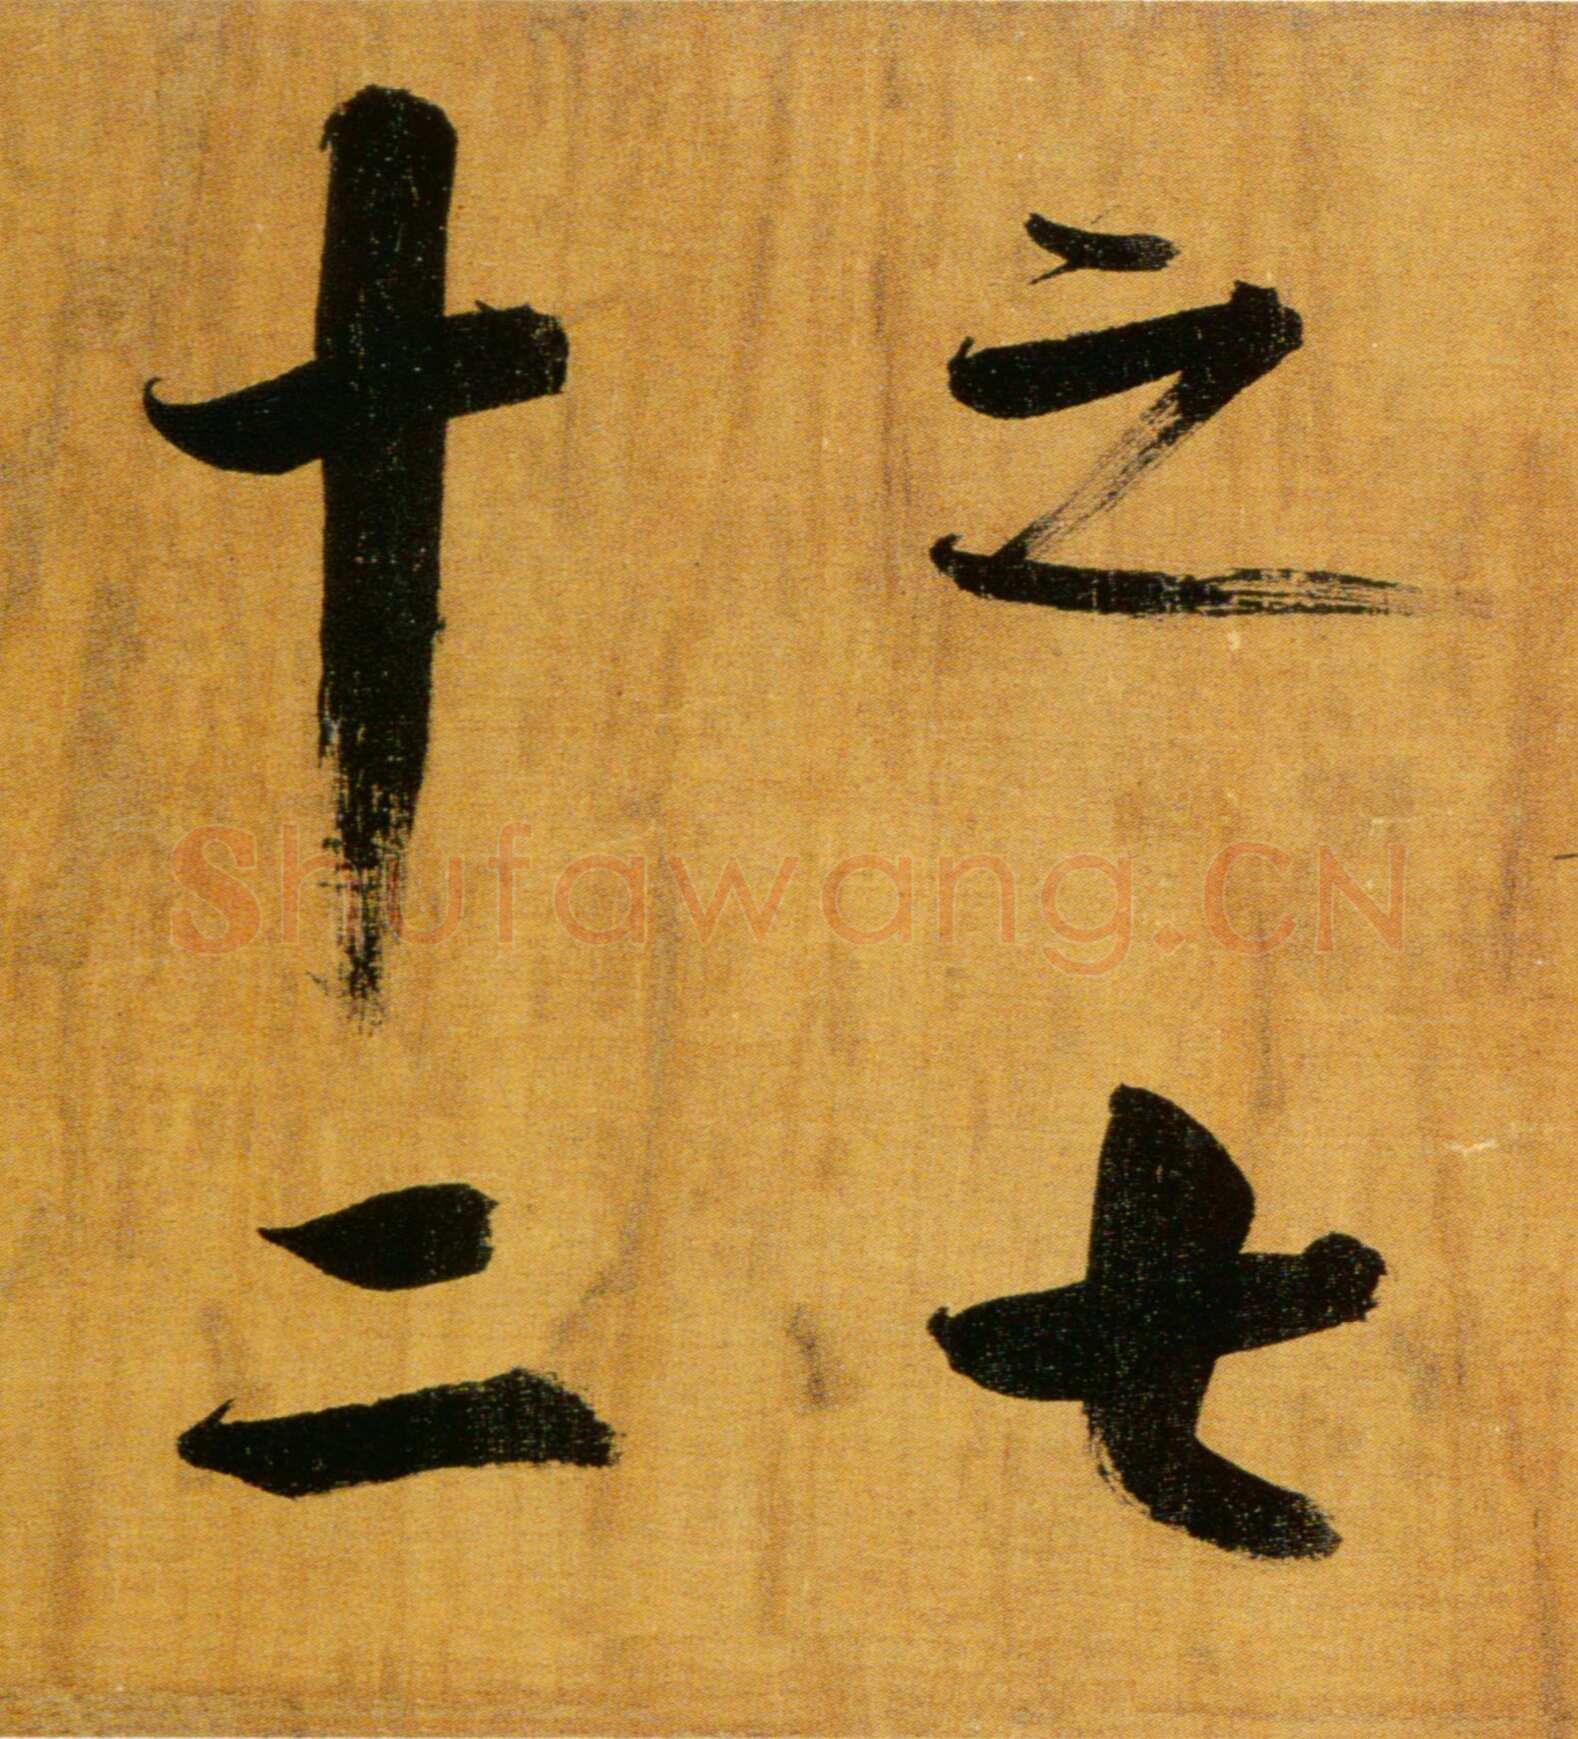 之七
十二
Shufawang.CN